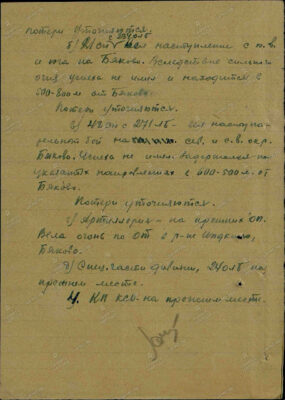 потери уточняются.
с 234 олб
б) 21 сп вел наступление с ю.в.
и юга на Быково. Вследствие сильного
огня успеха не имел и находится в
500-800м от Быково.
Потери уточняются.
в) 42 сп с 271 лб - вел наступа-
тельный бой на сев. и с.в. окр.
Быково. Успеха не имел. Задержался на
указанных направлениях в 600-500м. от
Быково.
Потери уточняются.
г) Артиллерия - на прежних ОП.
Вела огонь по ОТ в р-не
Быково.
д) Спец. части дивизии, 240 лб на
прежнем месте.
4. КП КСД - на прежнем месте.